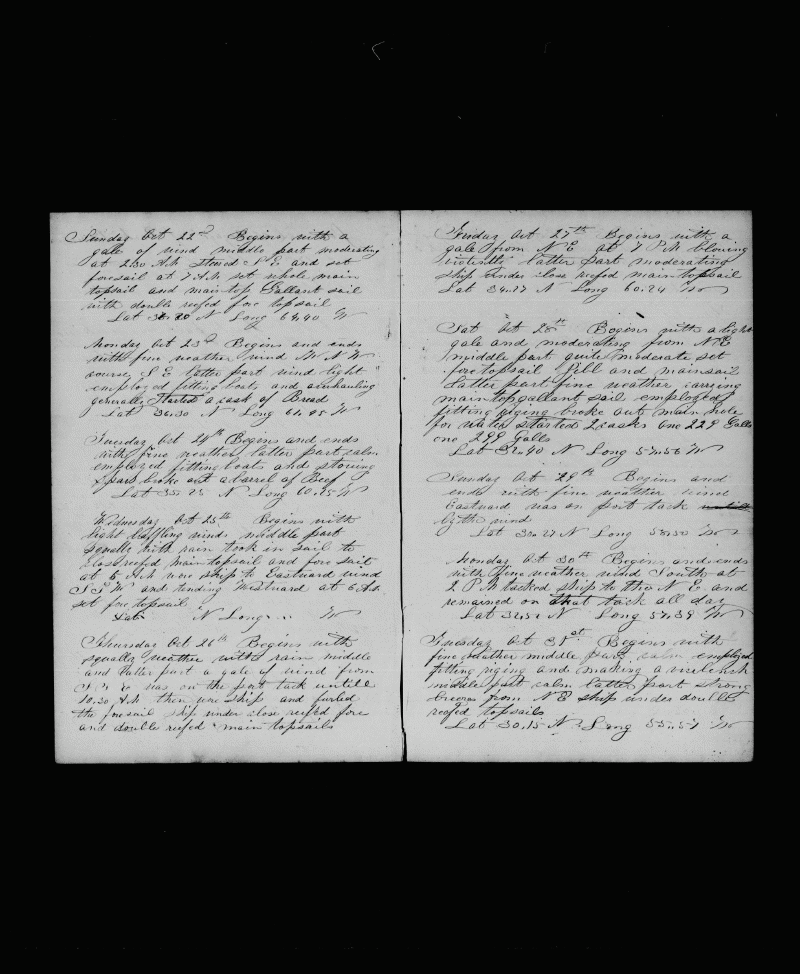 Sunday Oct 22nd Begins with a
gale of wind middle part moderating
at 2.30 A.M. Steered S E and set
foresail at 7 A.M. set whole main
topsail and main top Gallant sail
with double reefed fore topsail
Lat N Long 64.40 W
Monday Oct 23d Begins and ends
with fine weather wind W N W
course S E latter part wind light
employed fitting boats and overhauling
generally Started a cask of Bread
Lat 36.30 N Long W
Tuesday Oct 24th Begins and ends
with fine weather latter part calm
employed fitting boats and stowing
spars broke out a barrel of Beef
Lat N Long 60.15 W
Wednesday Oct 25th Begins with
light baffling wind middle part
squally with rain took in sail to
close reefed main topsail and fore sail
at 5 A.M. wore ship to Eastward wind
S S W and tending Westward at 6 A.M.
set fore topsail
Lat N Long W
Thursday Oct 26th Begins with
squally weather with rain middle
and latter part a gale of wind from
was on the port tack untill
10.30 A.M. then wore ship and furled
the foresail ship under close reefed fore
and double reefed main topsails
Friday Oct 27th Begins with a
gale from N E at 7 P.M. blowing
violently latter part moderating
ship under close reefed main topsail
Lat 34.27 N Long 60.24 W
Sat Oct 28th Begins with a light
gale and moderating from N E
middle part quite moderate set
fore topsail Jibb and mainsail
latter part fine weather carrying
main topgallant sail employed
fitting riging broke out main hole
for water started 2 casks one 229 Galls
one 299 Galls
Lat 32.40 N Long 57.56 W
Sunday Oct 29th Begins and
ends with fine weather wind
Eastward was on port tack
by the wind
Lat N Long W
Monday Oct 30th Begins and ends
with fine weather wind South at
2 P.M. tacked ship to the N E and
remained on that tack all day
Lat 32.52 N Long 57.39 W
Tuesday Oct 31st Begins with
fine weather middle part calm employed
fitting riging and making a
middle part calm latter part strong
breeze from N E ship under double
reefed topsails
Lat 30.15 N Long 55.57 W